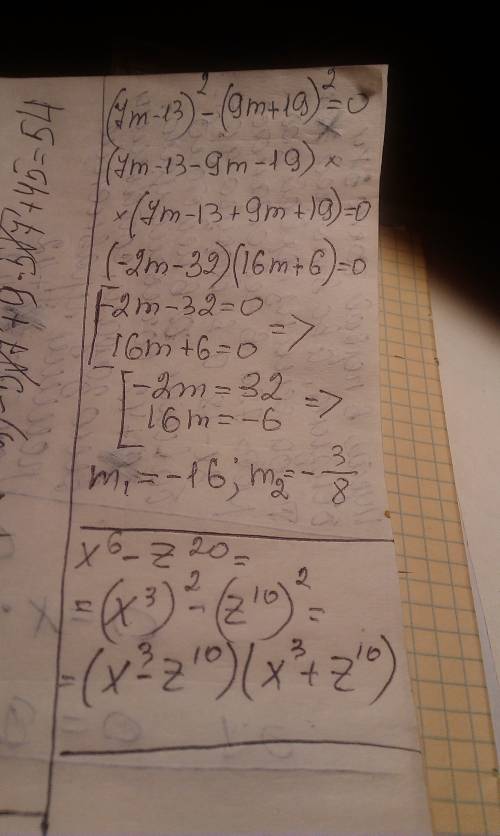 (7m-13)²-(9m+19)²=0
(7m-13-9m-19)×
×(7m-13+9m+19)=0
(-2m-32)(16m+6)=0
[-2m-32=0
16m+6=0 =>
[-2m=32
16m=-6 =>
m₁=-16; m₂=-3/8
x⁶-z²⁰=
=(x³)²-(z¹⁰)²=
=(x³-z¹⁰)(x³+z¹⁰)